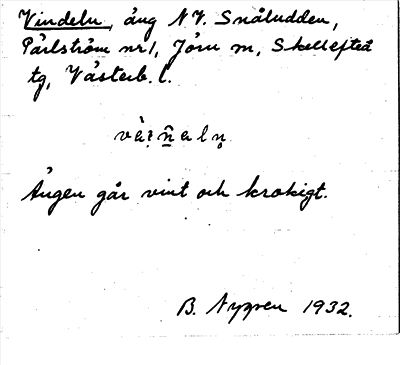 Vindeln, äng NV. Snåludden,
Pärlström nr 1, Jörn m, Skellefteå
tg, Västerb. l.
Ängen går vint och krokigt.
B. Nygren 1932.